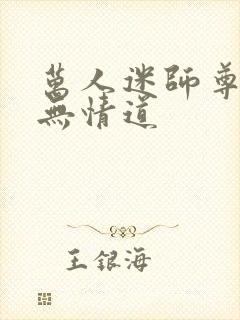 萬人迷師尊
無情道
王銀海